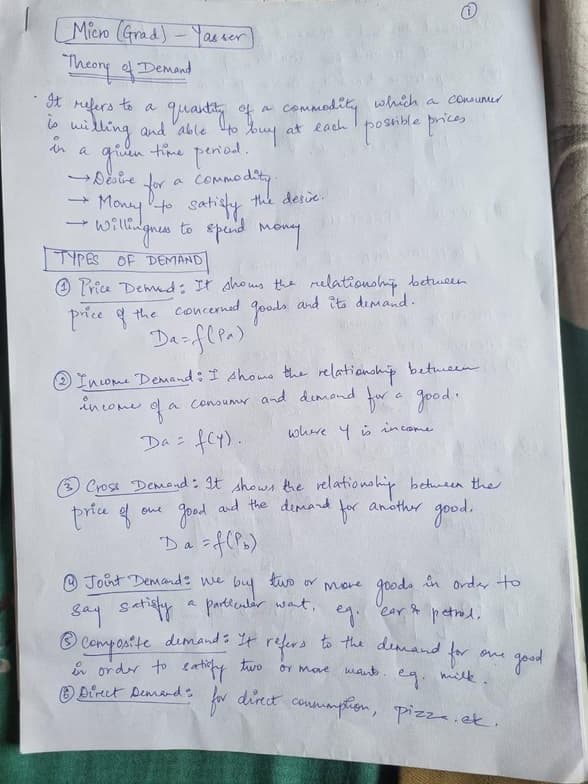 ①
Micro (Grad) - Yasser
Theory of Demand
It refers to a quantity of a commodity which a consumer
is willing and able to buy at each possible prices
in a given time period.
→ Desire for a commodity
→ Money to satisfy the desire.
→ Willingness to spend money
TYPES OF DEMAND
① Price Demand: It shows the relationship between
price of the concerned goods and its demand.
Da = f(Pa)
② Income Demand: I shows the relationship between
income of a consumer and demand for a good.
Da = f(Y). where Y is income
③ Cross Demand: It shows the relationship between the
price of one good and the demand for another good.
Da = f(Pb)
④ Joint Demand: We buy two or more goods in order to
say satisfy a particular want. eg. car & petrol.
⑤ Composite demand: It refers to the demand for one good
in order to satisfy two or more wants. eg. milk.
⑥ Direct Demand: for direct consumption, pizza. etc.